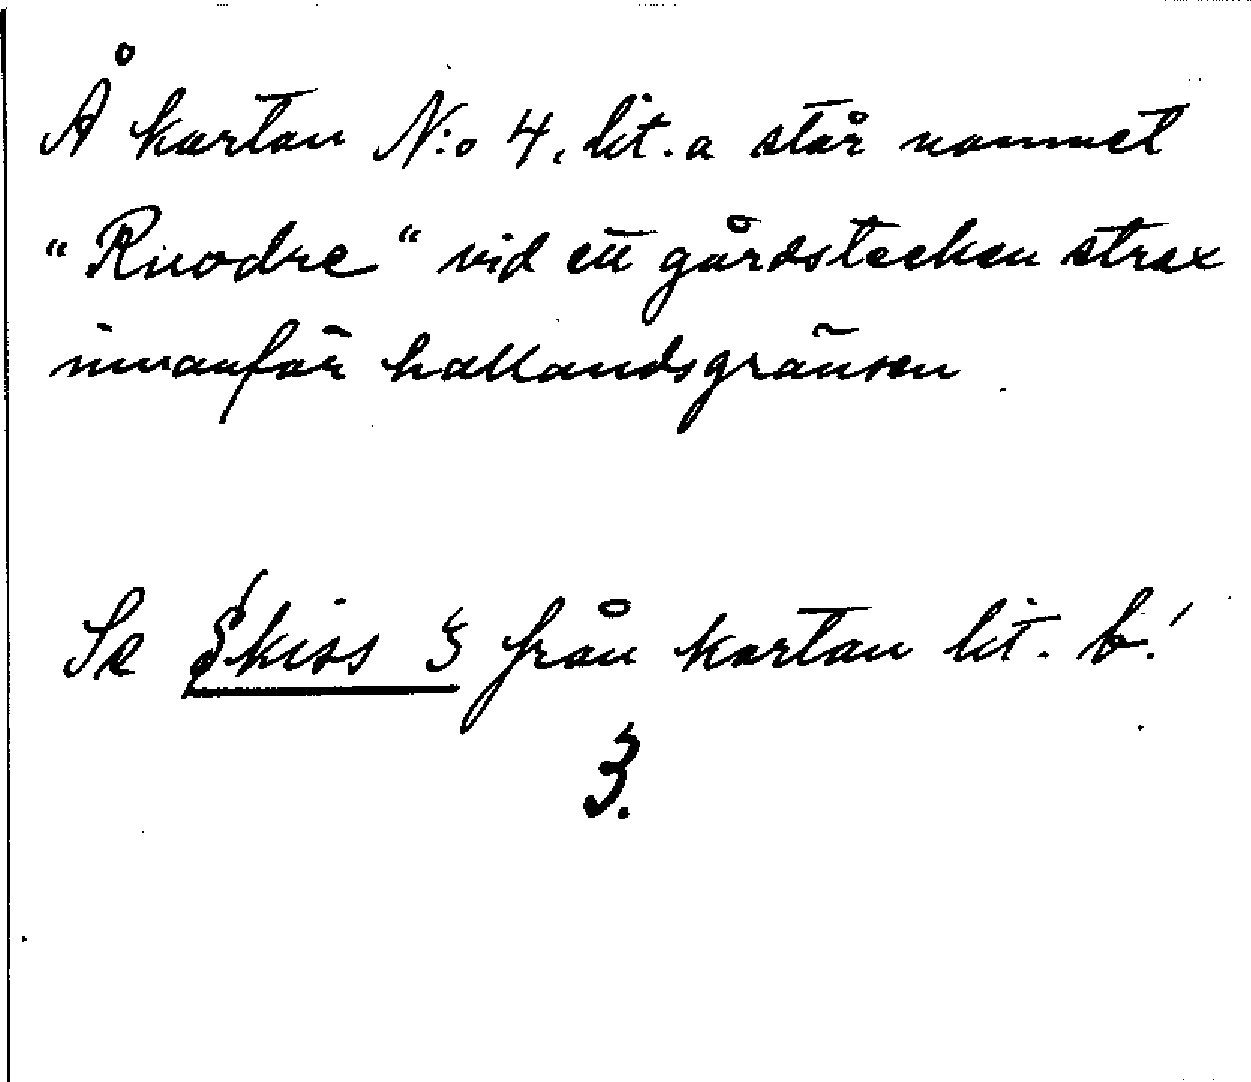 Å kartan N:o 4, lit. a står namnet
"Rnodre" vid ett gårdstecken strax
innanför hallandsgränsen
Se Skiss 3 från kartan lit. b.!
3.